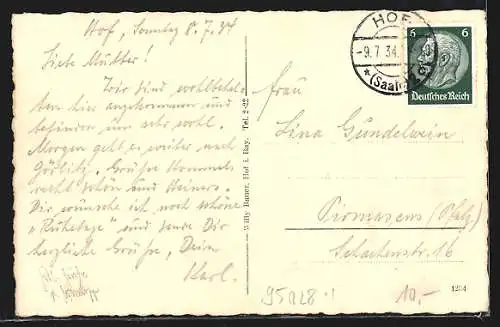 Hof, Sonntag 8.7.34
Liebe Mutter!
Wir sind wohlbehal-
ten hier angekommen und
befinden uns sehr wohl.
Morgen geht es weiter nach
Görlitz. Grüße Hommels
recht schön und Heiners.
Dir wünsche ich noch schöne
"Ruhetage" und sende Dir
herzliche Grüße, Dein
Karl.
Willy Bauer, Hof i. Bay. Tel. 2-22
HOF
-9.7.34.
(Saale)
6 6
Deutsches Reich
Frau
Lina Gundelwein
Pirmasens (Pfalz)
Schachenstr. 16
95028
10,-
1234